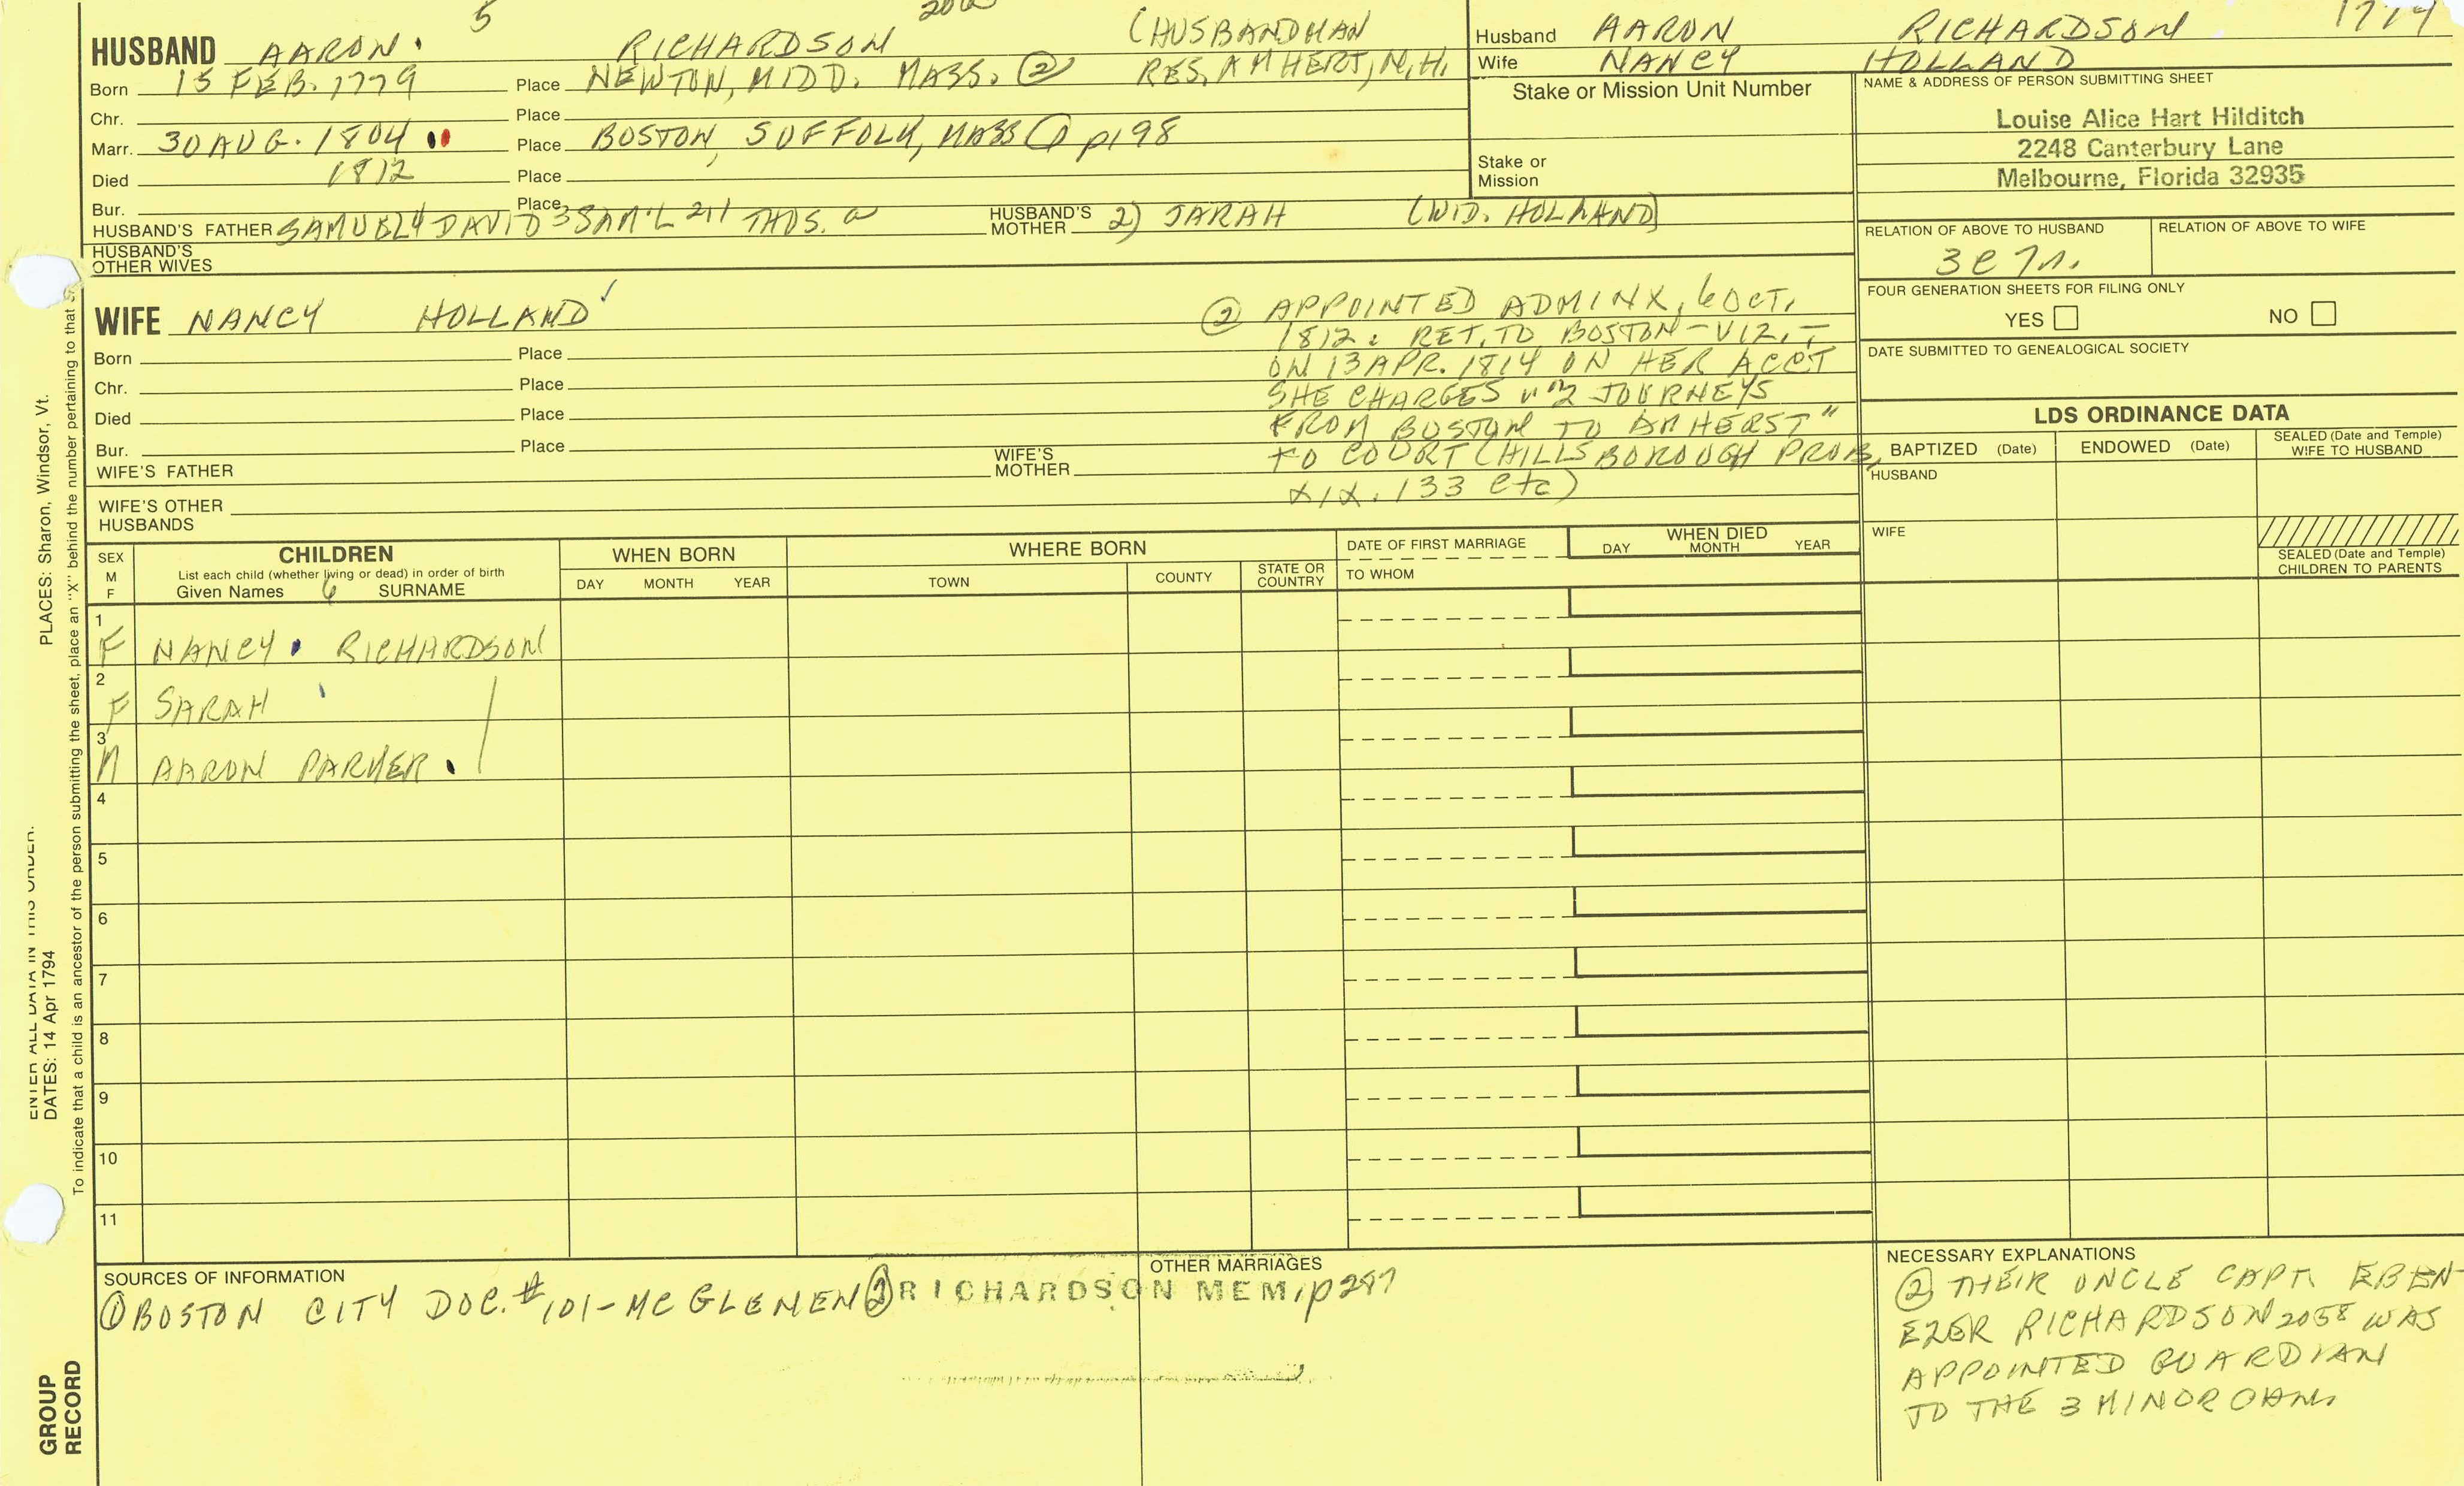 5
HUSBAND AARON. RICHARDSON (HUSBANDMAN
Born 15 FEB. 1779 Place NEWTON, MIDD. MASS. ② RES, AMHERT, N, H,
Chr. Place
Marr. 30 AUG. 1804 Place BOSTON, SUFFOLK, MASS ① p198
Died 1812 Place
Bur. Place
HUSBAND'S FATHER SAMUEL4 DAVID3 SAM'L 2,1 THOS. HUSBAND'S MOTHER 2) SARAH (WID. HOLLAND)
HUSBAND'S OTHER WIVES
Husband AARON RICHARDSON
Wife NANCY HOLLAND
Stake or Mission Unit Number
Stake or
Mission
NAME & ADDRESS OF PERSON SUBMITTING SHEET
Louise Alice Hart Hilditch
2248 Canterbury Lane
Melbourne, Florida 32935
RELATION OF ABOVE TO HUSBAND RELATION OF ABOVE TO WIFE
FOUR GENERATION SHEETS FOR FILING ONLY
YES NO
DATE SUBMITTED TO GENEALOGICAL SOCIETY
WIFE NANCY HOLLAND
Born Place
Chr. Place
Died Place
Bur. Place
WIFE'S FATHER WIFE'S MOTHER
WIFE'S OTHER
HUSBANDS
② APPOINTED ADMINX, 6 OCT.
1812. RET. TO BOSTON – VIZ. –
ON 13 APR. 1814 ON HER ACCT
SHE CHARGES "2 JOURNEYS
FROM BOSTON TO AMHERST"
TO COURT (HILLSBOROUGH PROB,
XIX. 133 etc)
LDS ORDINANCE DATA
BAPTIZED (Date) ENDOWED (Date) SEALED (Date and Temple) WIFE TO HUSBAND
HUSBAND
WIFE
SEALED (Date and Temple)
CHILDREN TO PARENTS
SEX
M
F
CHILDREN
List each child (whether living or dead) in order of birth
Given Names 6 SURNAME
WHEN BORN
DAY MONTH YEAR
WHERE BORN
TOWN COUNTY STATE OR COUNTRY
DATE OF FIRST MARRIAGE
TO WHOM
WHEN DIED
DAY MONTH YEAR
1
F NANCY. RICHARDSON
2
F SARAH
3
M AARON PARKER.
4
5
6
7
8
9
10
11
SOURCES OF INFORMATION
① BOSTON CITY DOC. # 101 - MC GLENEN ② RICHARDSON MEM, p287
OTHER MARRIAGES
NECESSARY EXPLANATIONS
② THEIR UNCLE CAPT. EBEN-
EZER RICHARDSON 2058 WAS
APPOINTED GUARDIAN
TO THE 3 MINOR
ENTER ALL DATA IN THIS ORDER.
DATES: 14 Apr 1794 PLACES: Sharon, Windsor, Vt.
To indicate that a child is an ancestor of the person submitting the sheet, place an "X" behind the number pertaining to that
GROUP
RECORD